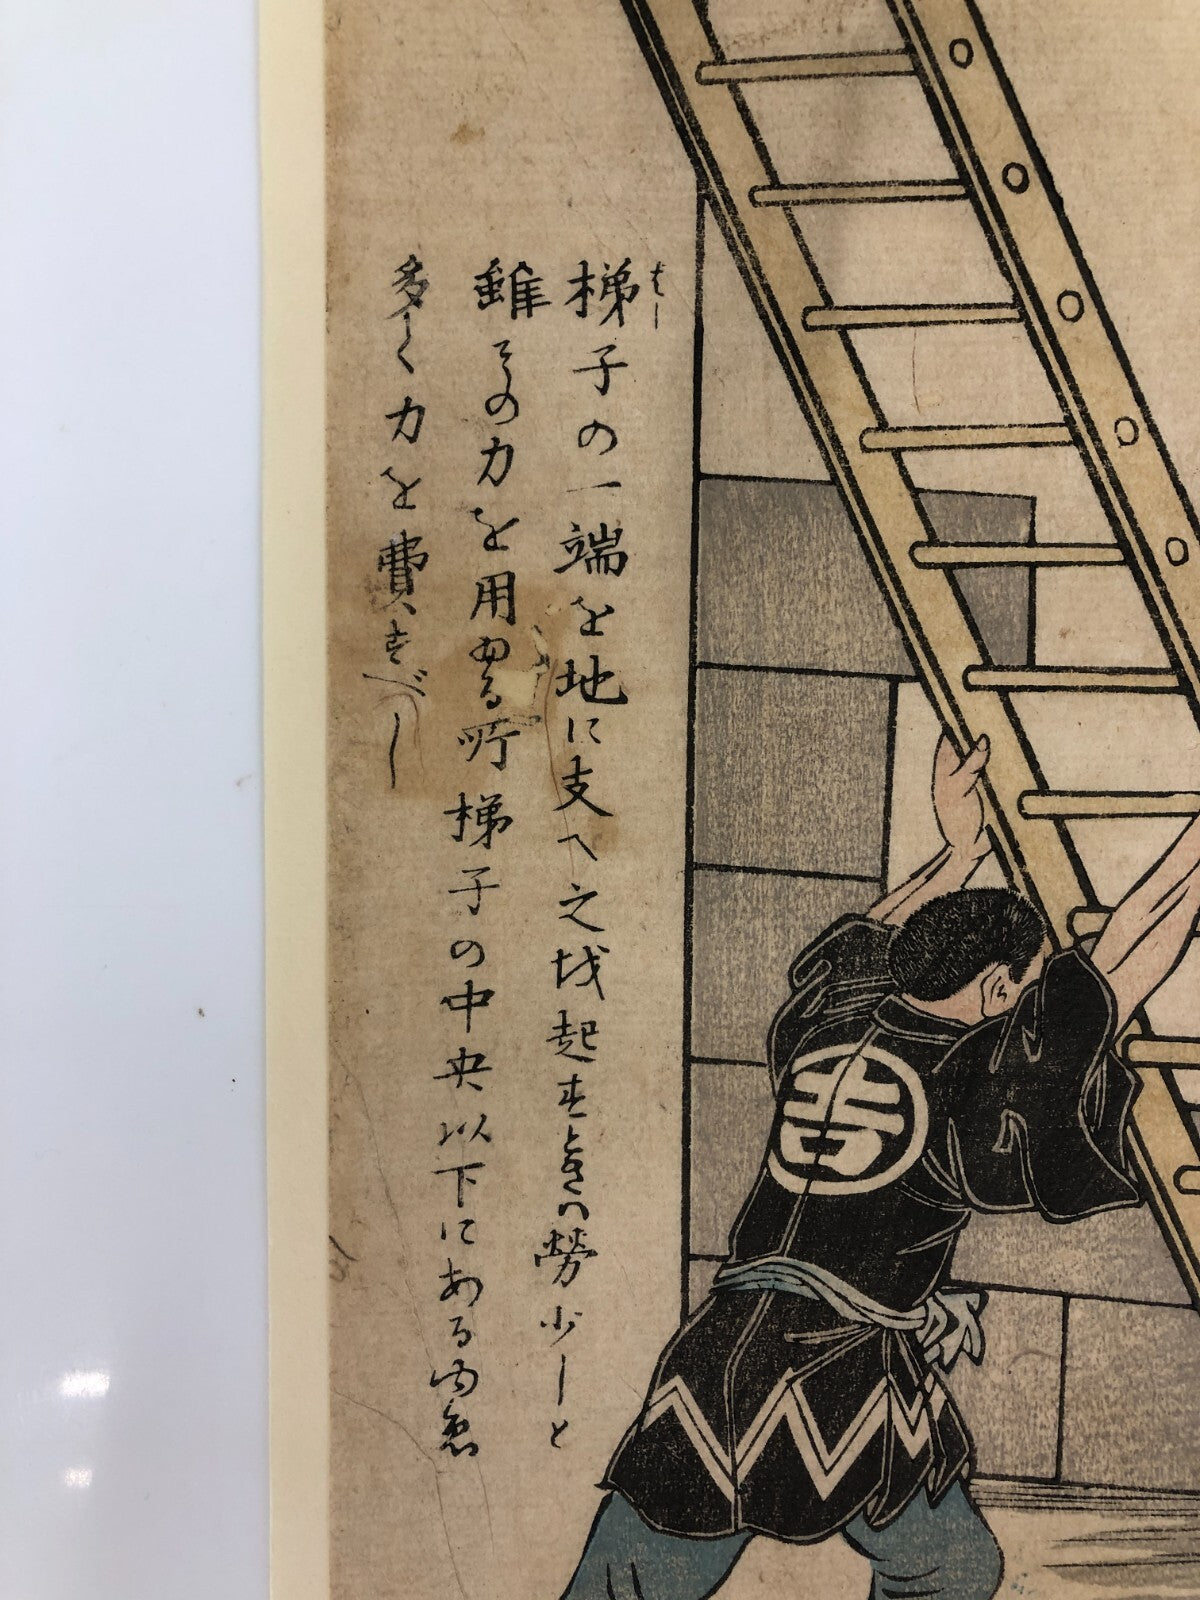 梯子の一端を地に支へ之を起すときハ勞少しと
雖その力を用ゆる所梯子の中央以下にある内ハ
多く力を費すべし
はし
吉